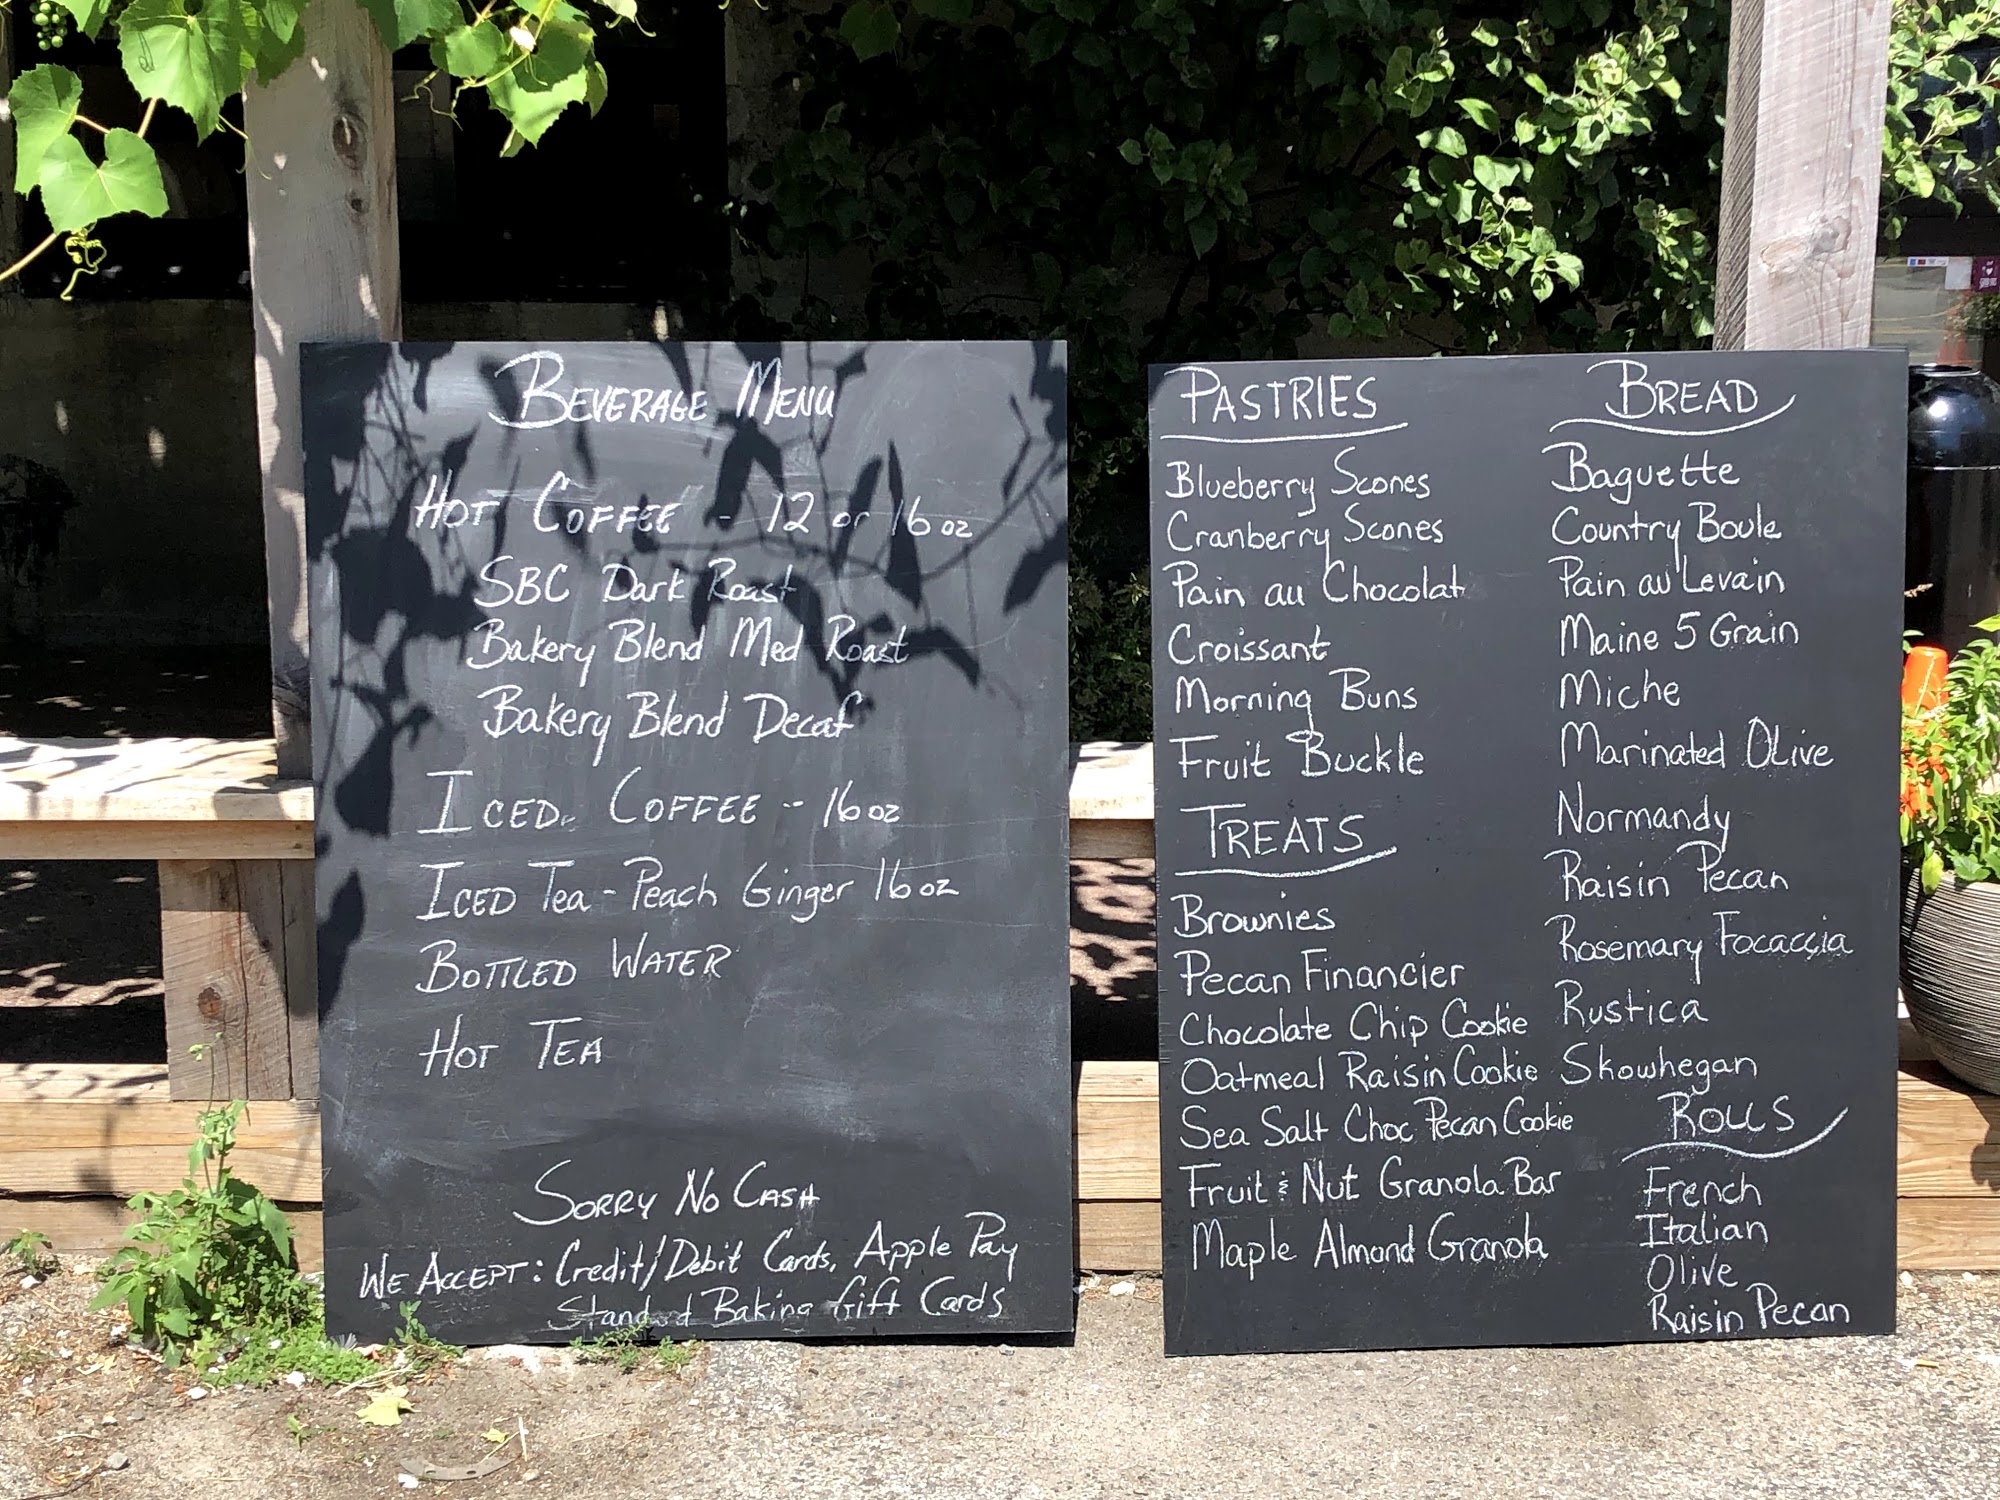 BEVERAGE MENU
HOT COFFEE - 12 or 16 oz
SBC Dark Roast
Bakery Blend Med Roast
Bakery Blend Decaf
ICED COFFEE -- 16 oz
ICED Tea - Peach Ginger 16 oz
BOTTLED WATER
HOT TEA
SORRY NO CASH
WE ACCEPT: Credit/Debit Cards, Apple Pay
Standard Baking Gift Cards
PASTRIES
Blueberry Scones
Cranberry Scones
Pain au Chocolat
Croissant
Morning Buns
Fruit Buckle
TREATS
Brownies
Pecan Financier
Chocolate Chip Cookie
Oatmeal Raisin Cookie
Sea Salt Choc Pecan Cookie
Fruit & Nut Granola Bar
Maple Almond Granola
BREAD
Baguette
Country Boule
Pain au Levain
Maine 5 Grain
Miche
Marinated Olive
Normandy
Raisin Pecan
Rosemary Focaccia
Rustica
Skowhegan
ROLLS
French
Italian
Olive
Raisin Pecan